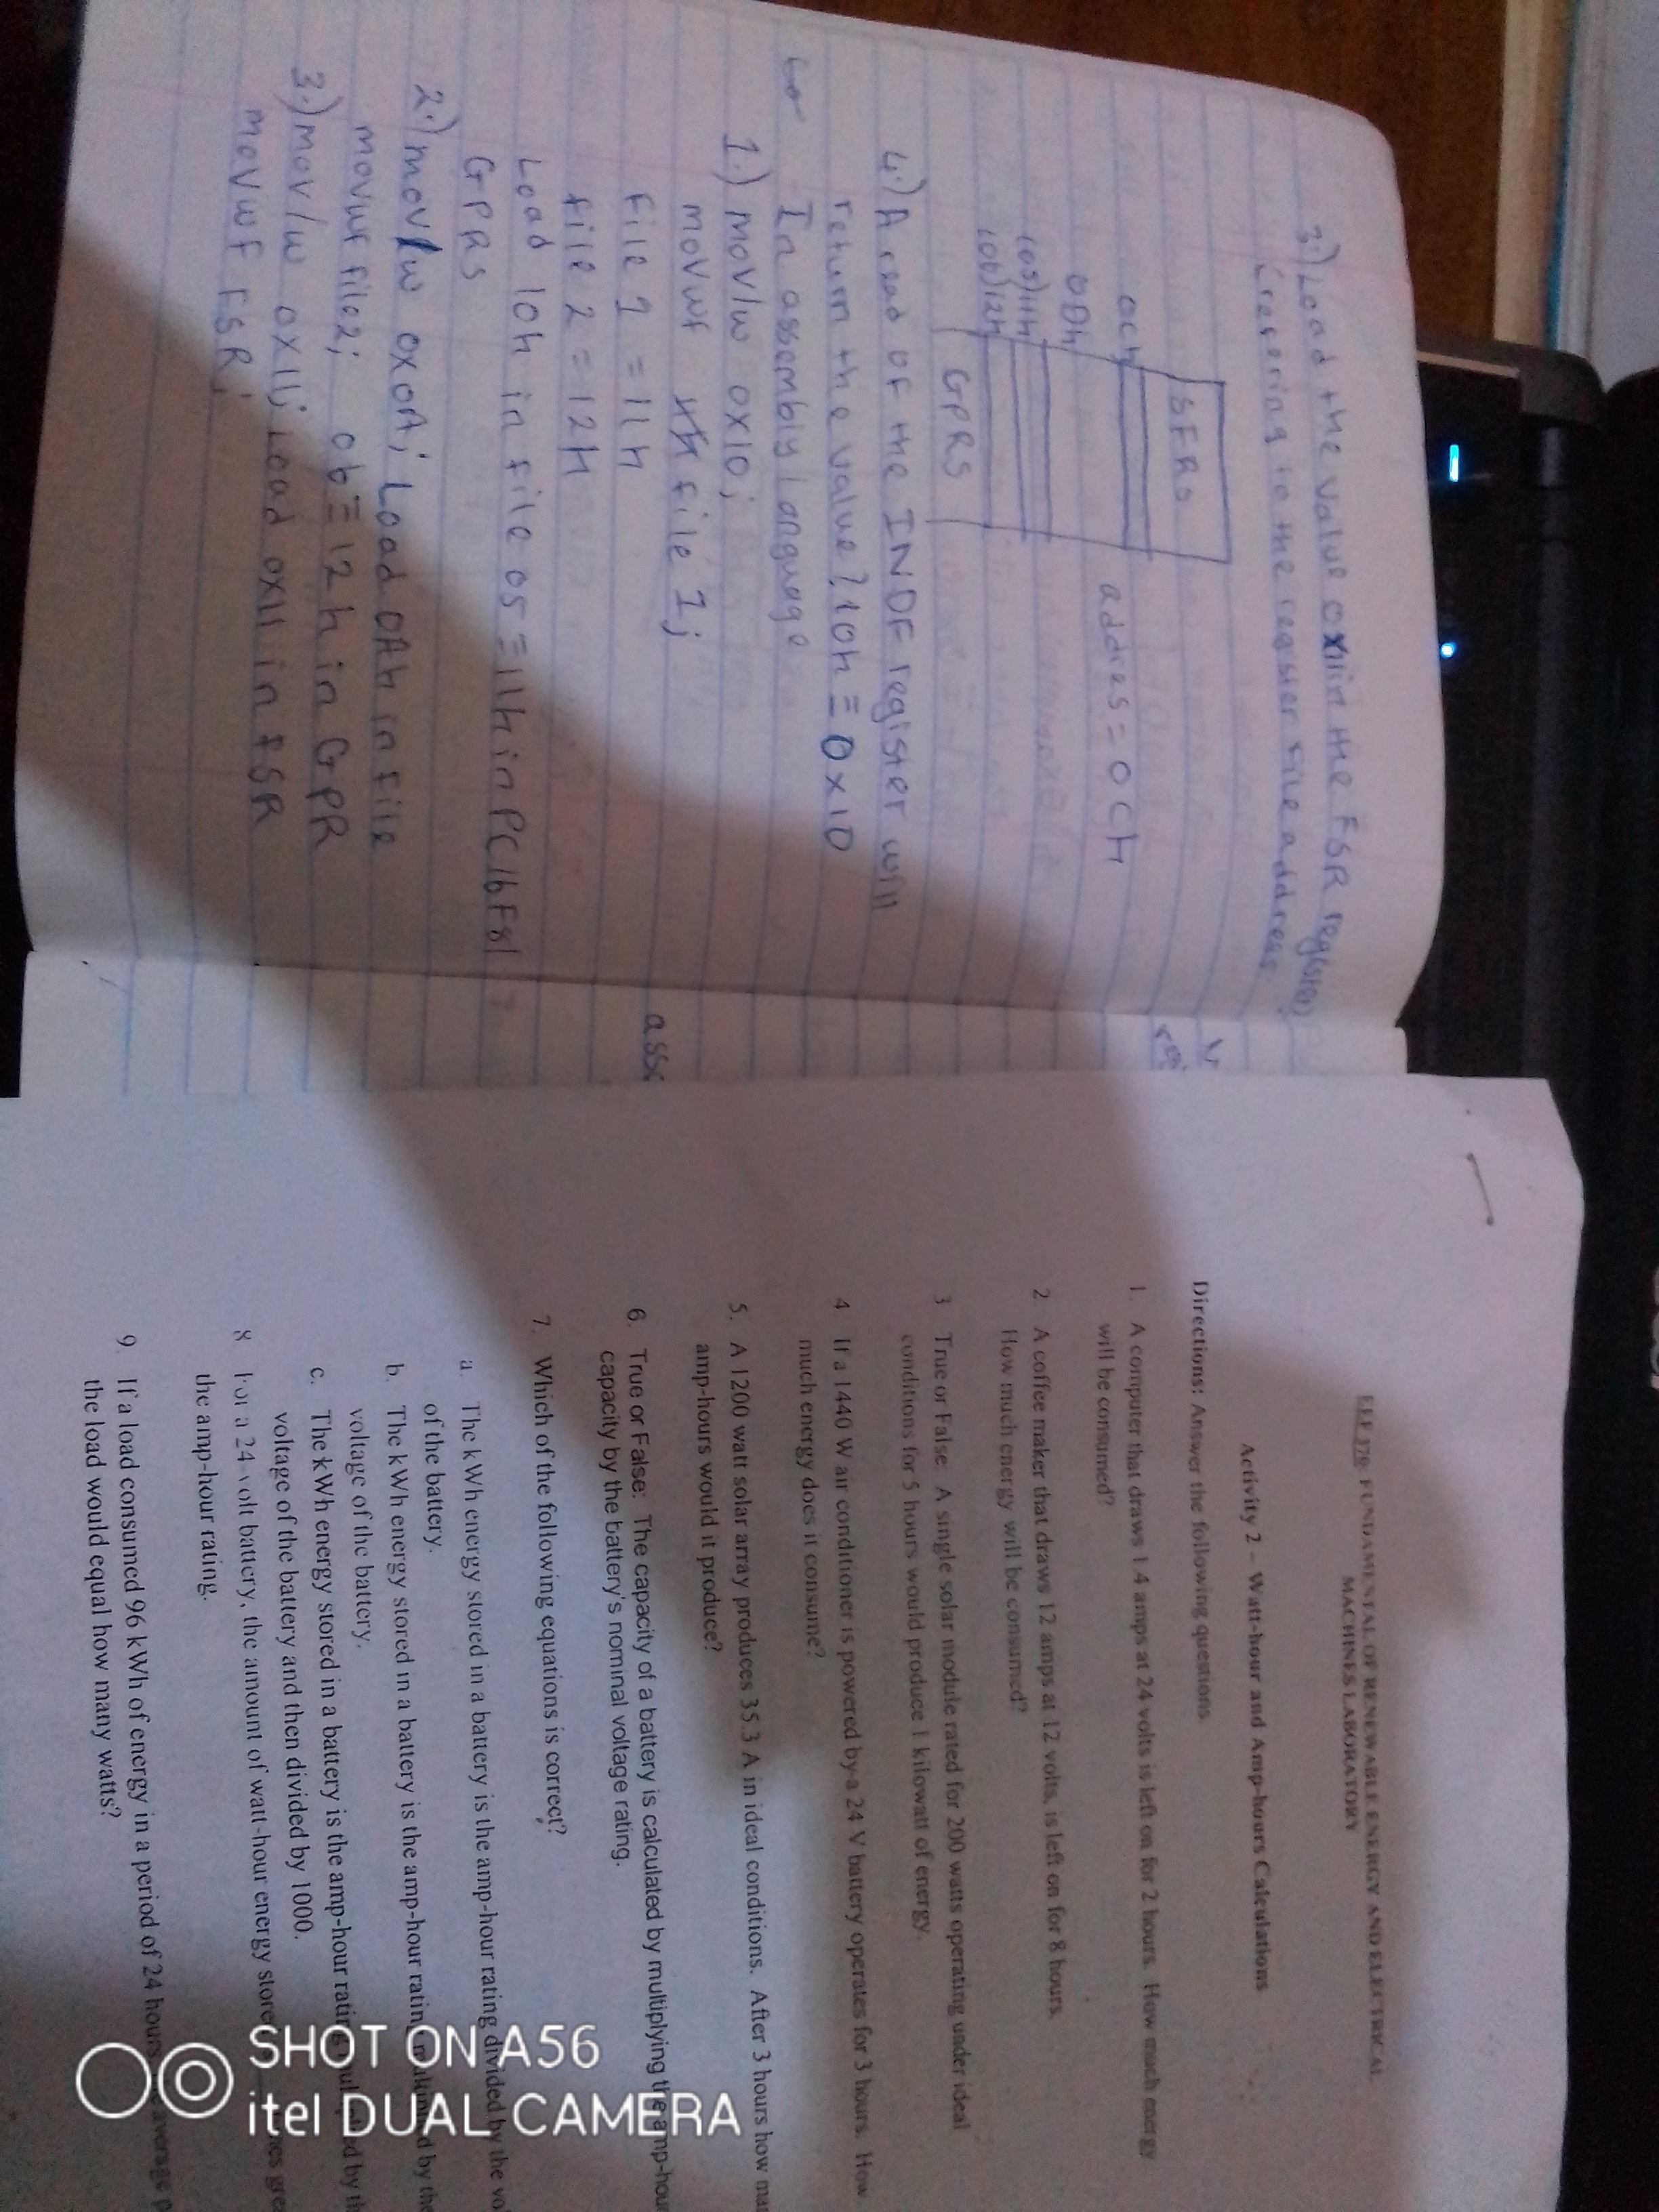 3.) Load the value 0x11 in the FSR register
(refering to the register file address
SFRs
0Ch
addres = 0Ch
0Dh
(05) 11h
(06) 12h
GPRs
4.) A read of the INDF register will
return the value? 10h ≡ 0x10
In assembly language
1.) mov/w 0x10;
movwf file 1;
file 1 = 11h
file 2 = 12h
Load 10h in file 05 ≡ 11h in PC16F81
GPRs
2.) mov/w 0x0A; Load 0Ah in file
movwf file2; 06 ≡ 12h in GPR
3.) mov/w 0x11; Load 0x11 in FSR
movwf FSR;
FUNDAMENTAL OF RENEWABLE ENERGY AND ELECTRICAL
MACHINES LABORATORY
Activity 2 – Watt-hour and Amp-hours Calculations
Directions: Answer the following questions.
1. A computer that draws 1.4 amps at 24 volts is left on for 2 hours. How much energy
will be consumed?
2 A coffee maker that draws 12 amps at 12 volts, is left on for 8 hours.
How much energy will be consumed?
3 True or False: A single solar module rated for 200 watts operating under ideal
conditions for 5 hours would produce 1 kilowatt of energy.
4 If a 1440 W air conditioner is powered by a 24 V battery operates for 3 hours. How
much energy does it consume?
5. A 1200 watt solar array produces 35.3 A in ideal conditions. After 3 hours how
amp-hours would it produce?
6. True or False: The capacity of a battery is calculated by multiplying the amp-hour
capacity by the battery's nominal voltage rating.
7. Which of the following equations is correct?
a. The kWh energy stored in a battery is the amp-hour rating divided by the
of the battery.
b. The kWh energy stored in a battery is the amp-hour rating by the
voltage of the battery.
c. The kWh energy stored in a battery is the amp-hour rating by
voltage of the battery and then divided by 1000.
8 For a 24-volt battery, the amount of watt-hour energy
the amp-hour rating.
9. If a load consumed 96 kWh of energy in a period of 24 hours average
the load would equal how many watts?
SHOT ON A56
itel DUAL CAMERA